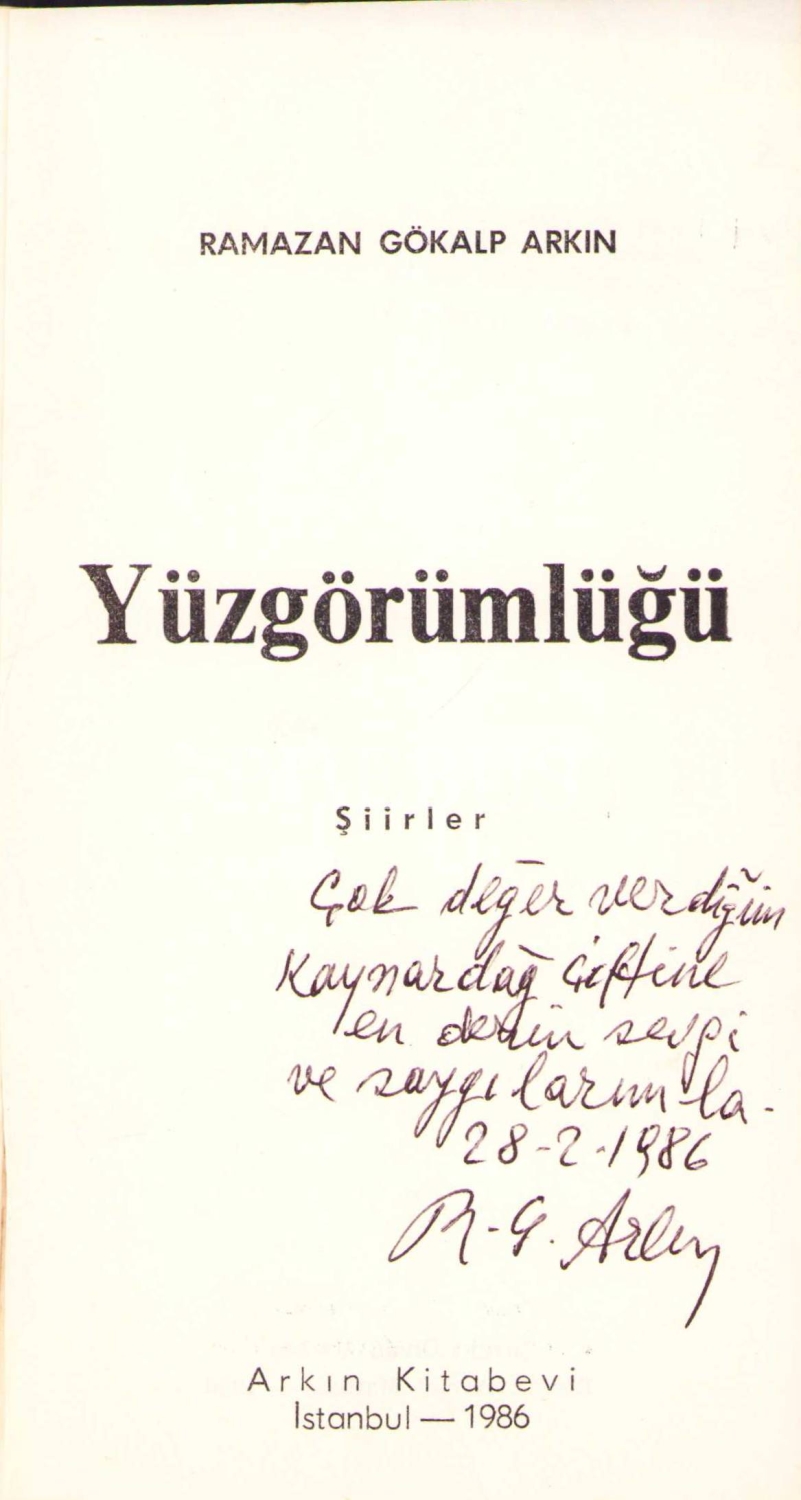 RAMAZAN GÖKALP ARKIN
Yüzgörümlüğü
Şiirler
Çok değer verdiğim
Kaynardağ çiftine
en derin sevgi
ve saygılarımla.
28-2-1986
R. G. Arkın
Arkın Kitabevi
İstanbul — 1986